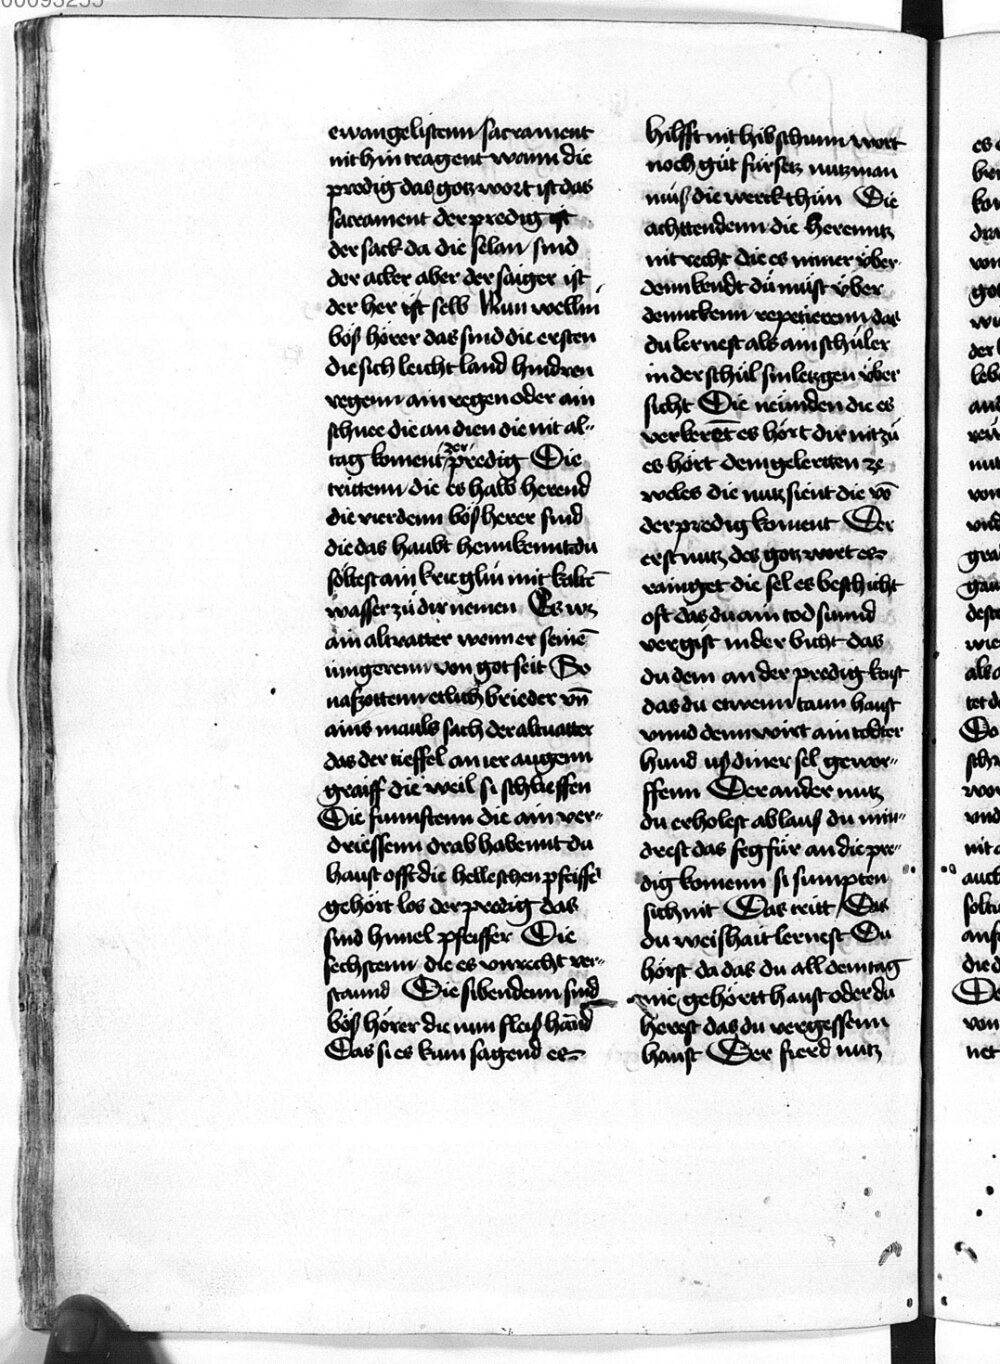 00093255
ewangelistenn sacrament
nit hin tragent wann die
predig das gotz wort ist das
sacrament der predig ist
der sack da die selan sind
der acker aber der saiger ist
der her ist selb Nun wellin
böß hörer das sind die ersten
die sich leicht land hindren
regenn ain regen oder ain
schnee die an dien die nit al-
tag koment zer predig Die
trittenn die es halb herend
die vierdenn böß herer sind
die das haubt hennkennt du
söltest ain krieglin mit kaltē
wasser zů dir nemen Es wz
ain altvatter wenn er seinē
iungerenn von got seit So
nafzottenn etlich brieder vn̄
ains mauls sach der altuatter
das der tieffel an ier augenn
graiff die weil si schlieffen
Die funnftenn die ain ver-
driessenn drab habennt du
haust offt die helleschen pfeiffe
gehört los der predig das
sind himel pfeiffer Die
sechstenn die es vnrecht ver-
staund Die sibendenn sind
böß hörer die nun fleiß hand
Das si es kum sagend es
hilfft nit hibschunn wort
noch gůt fürsetz nutz man
můß die werck thůn Die
achttendenn die herenntz
nit recht die es nimer über
dennkendt du můst über
dennckenn repetierenn das
du lernest als ain schůler
in der schůl sin letzgen über
sicht Die neünden die es
verkerēt es hört dir nit zů
es hört dem gelertten ze
weles die nutz sient die vō
der predig koment Der
erst nutz des gotz wort er
rainget die sel es beschicht
oft das du ain tod sunnd
vergist in der bicht das
du dem an der predig kenst
das du etwenn taun haust
vnnd denn wirt ain todter
hund uß diner sel gewor-
ffenn Der ander nutz
du erholest ablauß du min-
drest das fegfür an die pre-
dig komenn si sumpten
sich nit Das tritt Das
du weishait lernest Du
hörst da das du all dein tag
nie gehörtt haust oder du
herest das du vergessenn
haust Der fierd nutz